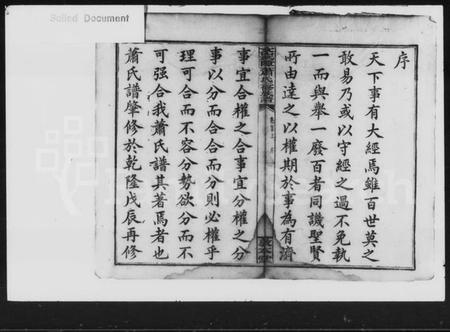 Soiled Document
序
天下事有大經焉雖百世莫之
敢易乃或以守經之過不免執
一而與舉一廢百者同譏聖賢
所由達之以權期於事為有濟
事宜合權之合事宜分權之分
事以分而合合而分則必權乎
理可合而不容分勢欲分而不
可强合我蕭氏譜其著焉者也
蕭氏譜肇修於乾隆戊辰再修